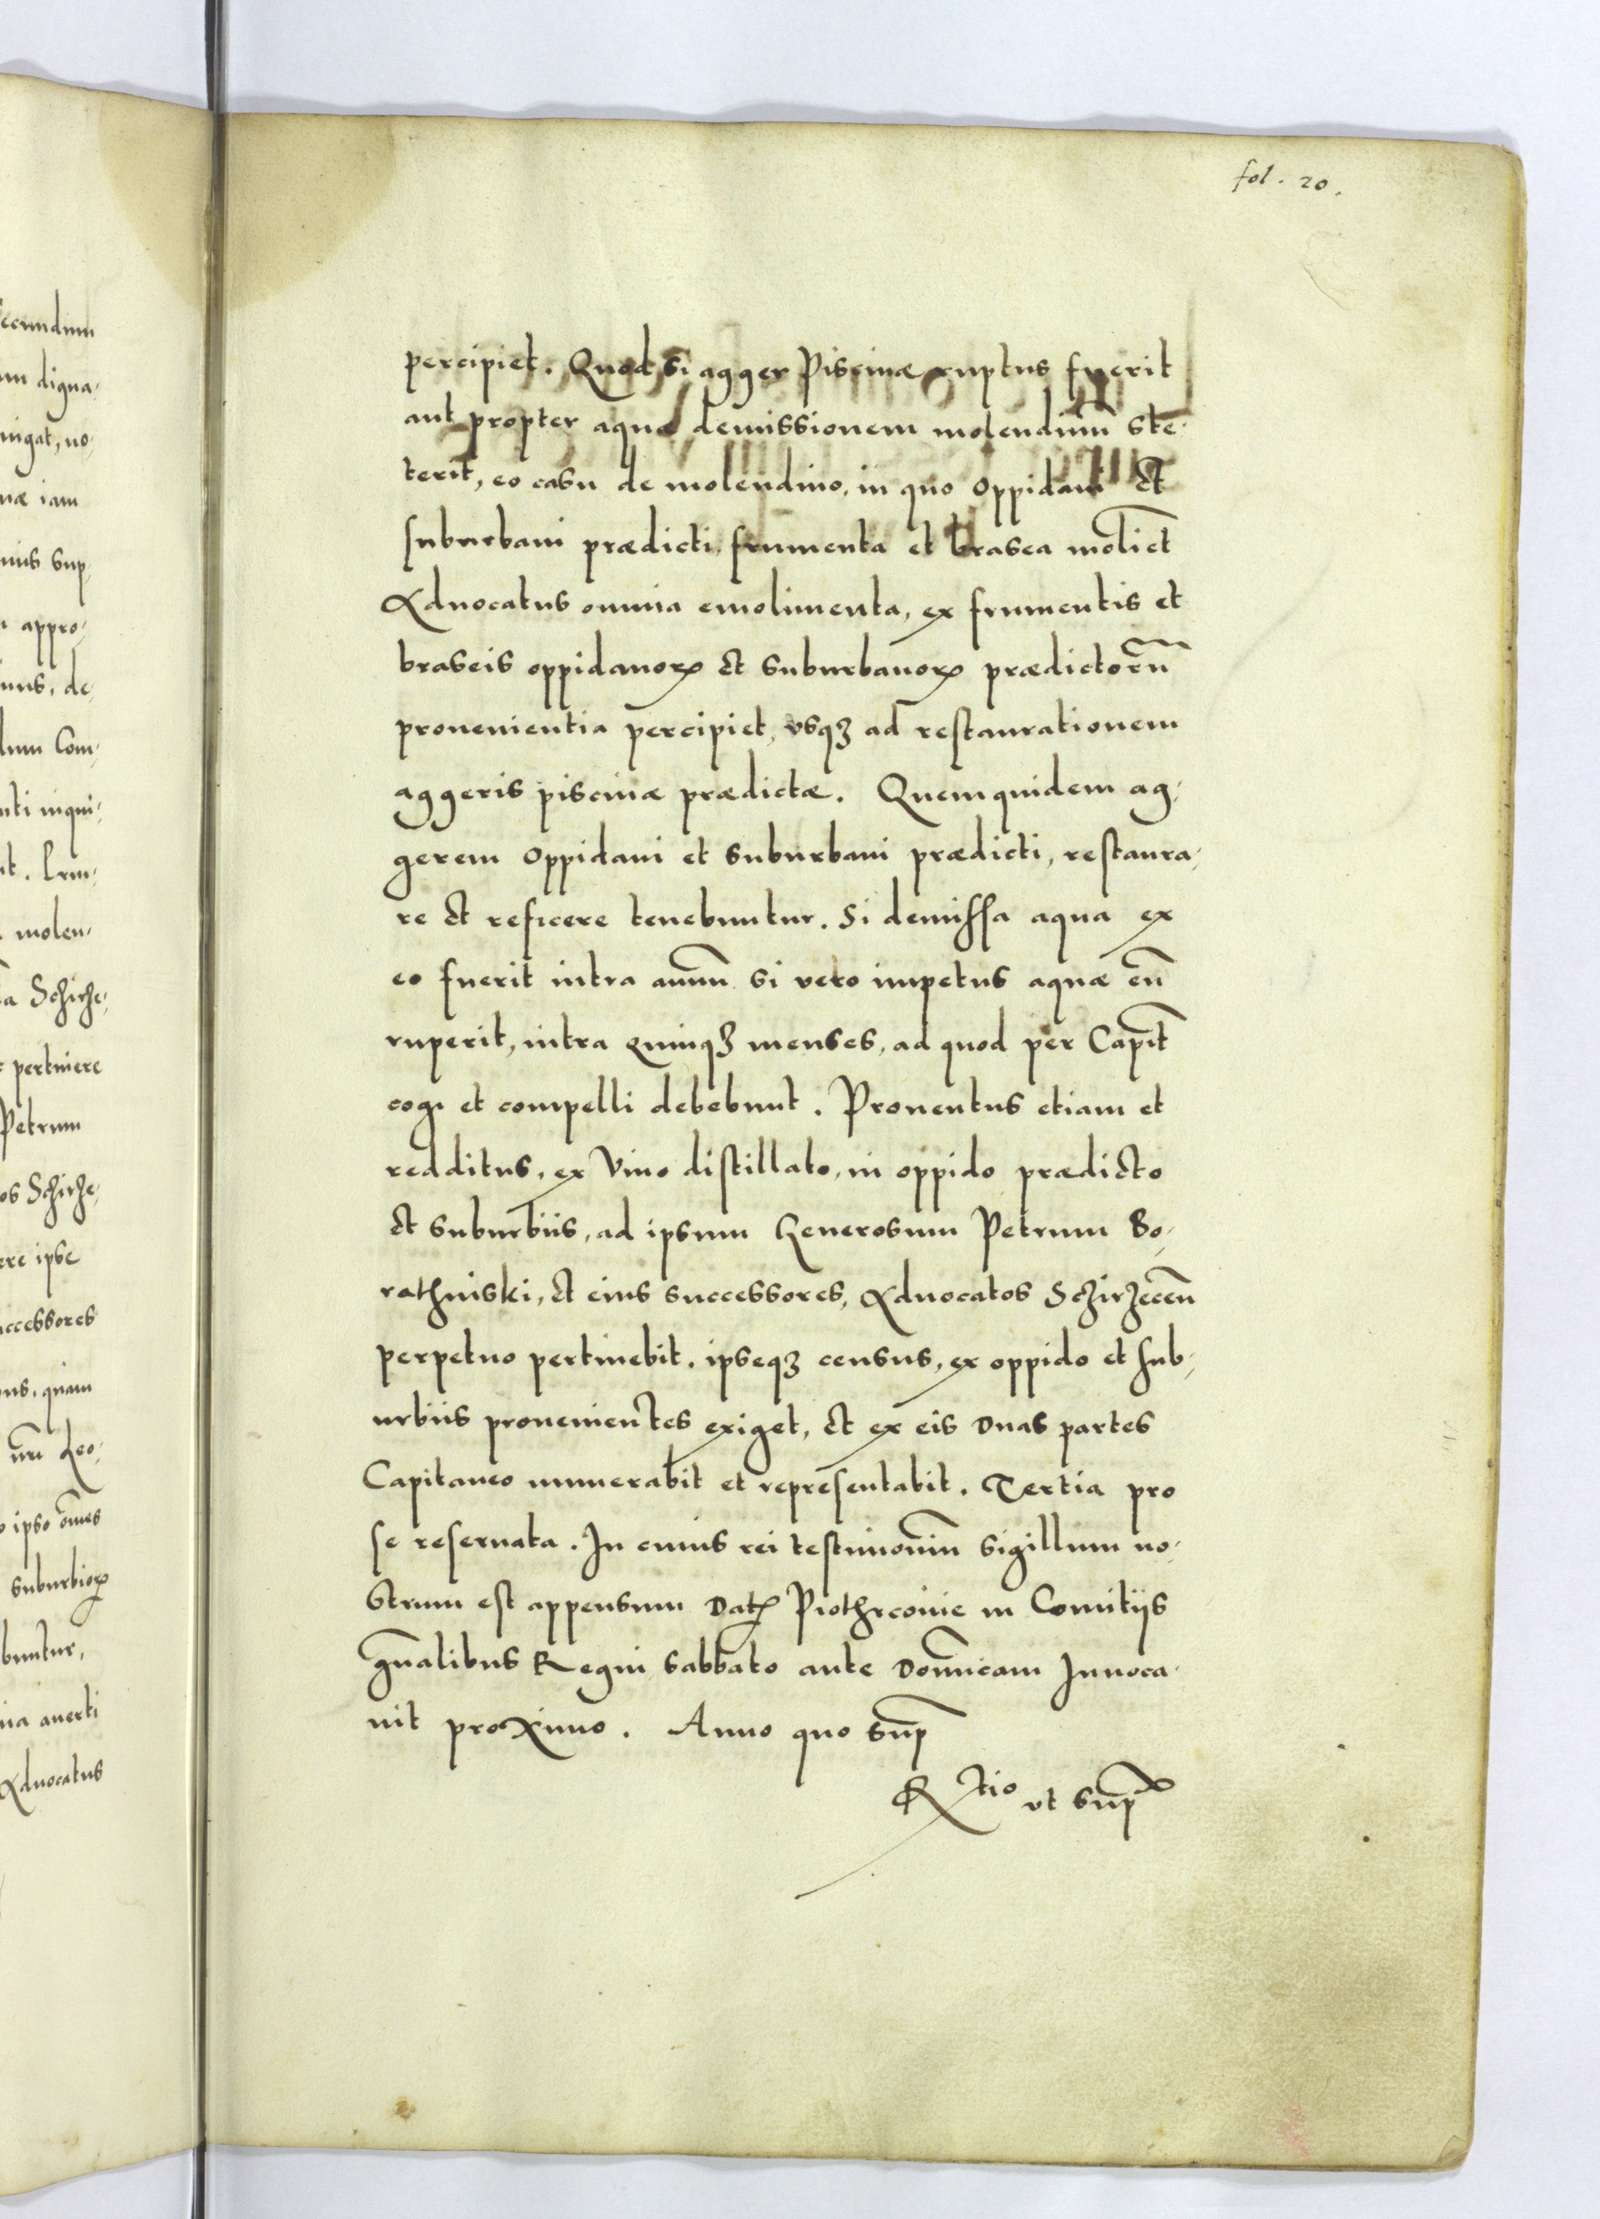 fol. 20.
percipiet. Quod si agger Piscinæ ruptus fuerit
aut propter aquæ demissionem molendinũ ste-
terit, eo casu de molendino, in quo Oppidani et
suburbani prædicti, frumenta et brasea moliẽt
Aduocatus omnia emolimenta, ex frumentis et
braseis oppidanoꝝ et suburbanoꝝ prædictorũ
prouenientia percipiet, vsqꝫ ad restaurationem
aggeris piscinæ prædictæ. Quemquidem ag-
gerem Oppidani et suburbani prædicti, restaura-
re et reficere tenebuntur. Si demissa aqua ex
eo fuerit intra annũ si vero impetus aquæ eũ
ruperit, intra quinqꝫ menses, ad quod per Capit̃
cogi et compelli debebunt. Prouentus etiam et
redditus, ex Vino distillato, in oppido prædicto
et suburbiis, ad ipsum Generosum Petrum Bo-
rathniski, et eius successores, Aduocatos Schirzeceñ
perpetuo pertinebit. ipseqꝫ census, ex oppido et sub-
urbiis prouenientes exiget, et ex eis duas partes
Capitaneo numerabit et representabit. Tertia pro
se reseruata. In cuius rei testimoniũ sigillum no-
strum est appensum Datꝫ Piothrcouie in Comitiis
gñalibus Regni sabbato ante Domĩcam Inuoca-
uit proximo. Anno quo sup̃
Rtio vt sup̃
ecundum
um digna-
ingat, no-
næ iam
nius sup
appro-
de-
dum Com-
nti inqui-
molen-
Schirze-
pertinere
Petrum
os Schirze-
ere ipse
uccessores
quam
Leo-
ipso oẽs
suburbioꝝ
buntur,
nia auerti
Aduocatus